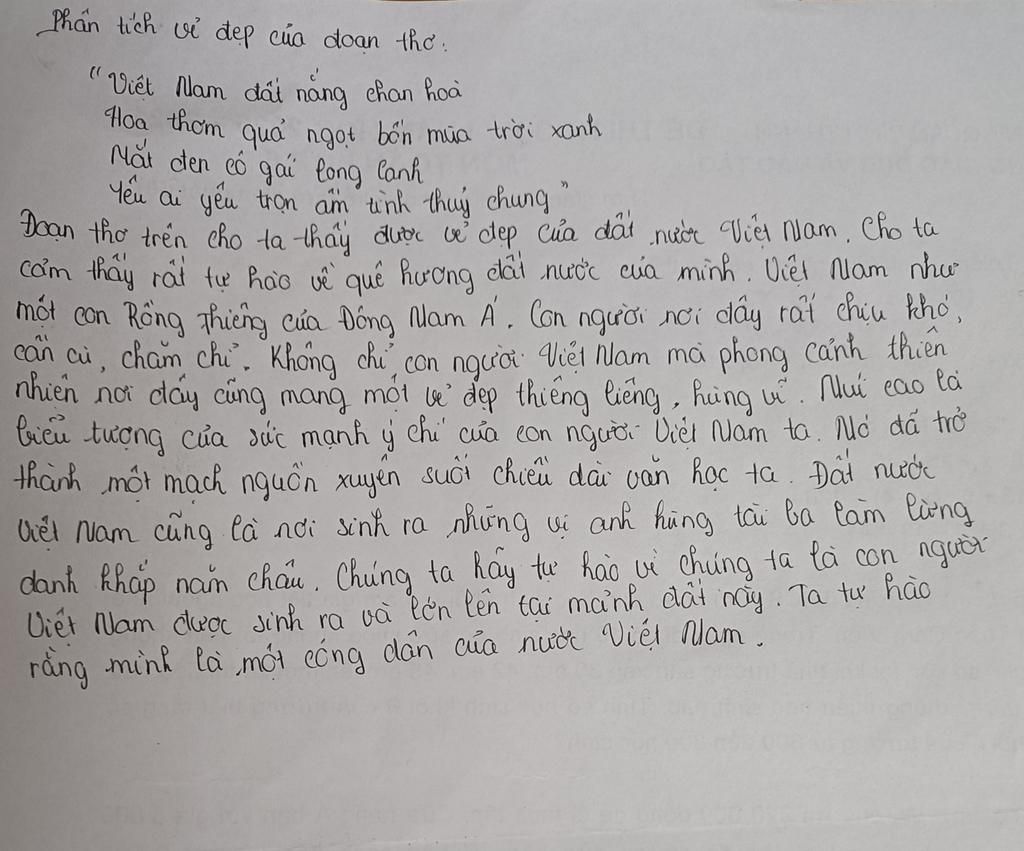 Phân tích vẻ đẹp của đoạn thơ:
"Việt Nam đất nắng chan hoà
Hoa thơm quả ngọt bốn mùa trời xanh
Mắt đen cô gái long lanh
Yêu ai yêu trọn ấm tình thuỷ chung"
Đoạn thơ trên cho ta thấy được vẻ đẹp của đất nước Việt Nam. Cho ta
cảm thấy rất tự hào về quê hương đất nước của mình. Việt Nam như
một con Rồng thiêng của Đông Nam Á. Con người nơi đây rất chịu khó,
cần cù, chăm chỉ. Không chỉ con người Việt Nam mà phong cảnh thiên
nhiên nơi đây cũng mang một vẻ đẹp thiêng liêng, hùng vĩ. Núi cao là
biểu tượng của sức mạnh ý chí của con người Việt Nam ta. Nó đã trở
thành một mạch nguồn xuyên suốt chiều dài văn học ta. Đất nước
Việt Nam cũng là nơi sinh ra những vị anh hùng tài ba làm lừng
danh khắp năm châu. Chúng ta hãy tự hào vì chúng ta là con người
Việt Nam được sinh ra và lớn lên tại mảnh đất này. Ta tự hào
rằng mình là một công dân của nước Việt Nam.